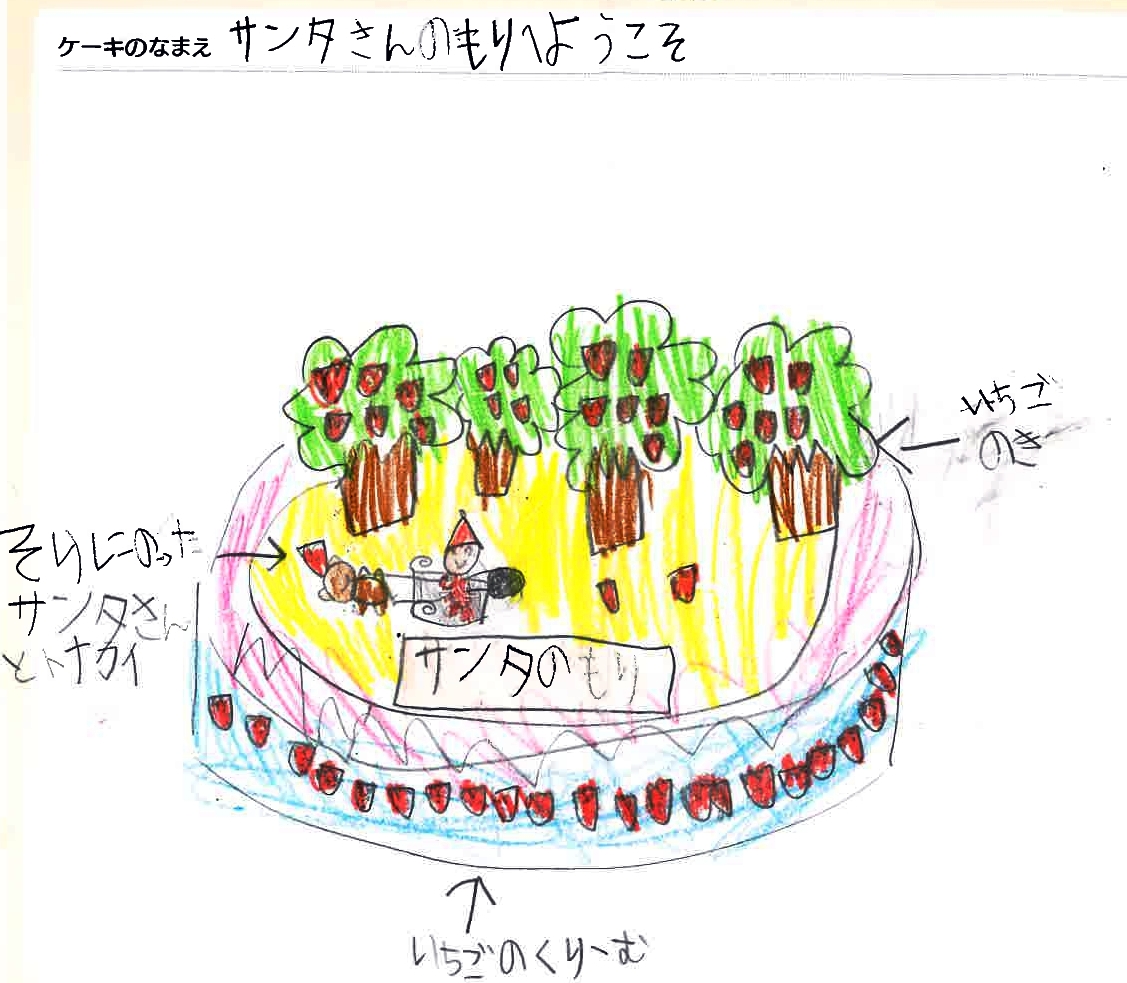 ケーキのなまえ サンタさんのもりへようこそ
いちご
のき
そりにのった
サンタさん
とトナカイ
サンタのもり
いちごのくりーむ